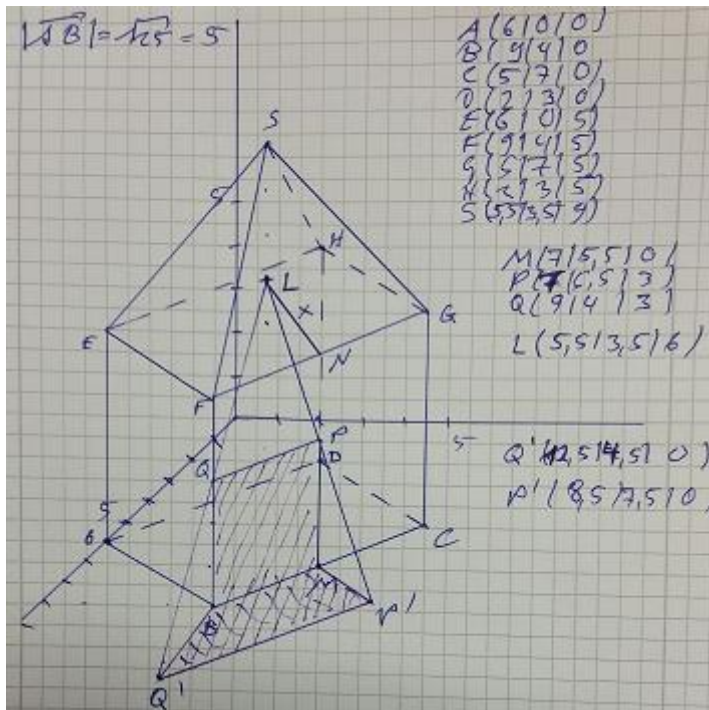 |AB| = √25 = 5
A(6|0|0)
B(9|4|0
C(5|7|0)
D(2|3|0)
E(6|0|5)
F(9|4|5)
G(5|7|5)
H(2|3|5)
S(5,5|3,5|9)
M(7|5,5|0)
P(7|5,5|3)
Q(9|4|3)
L(5,5|3,5|6)
Q'(12,5|4,5|0)
P'(8,5|7,5|0)
S
5
H
L
x
G
E
N
F
P
5
Q
D
5
6
C
B
M
P'
Q'